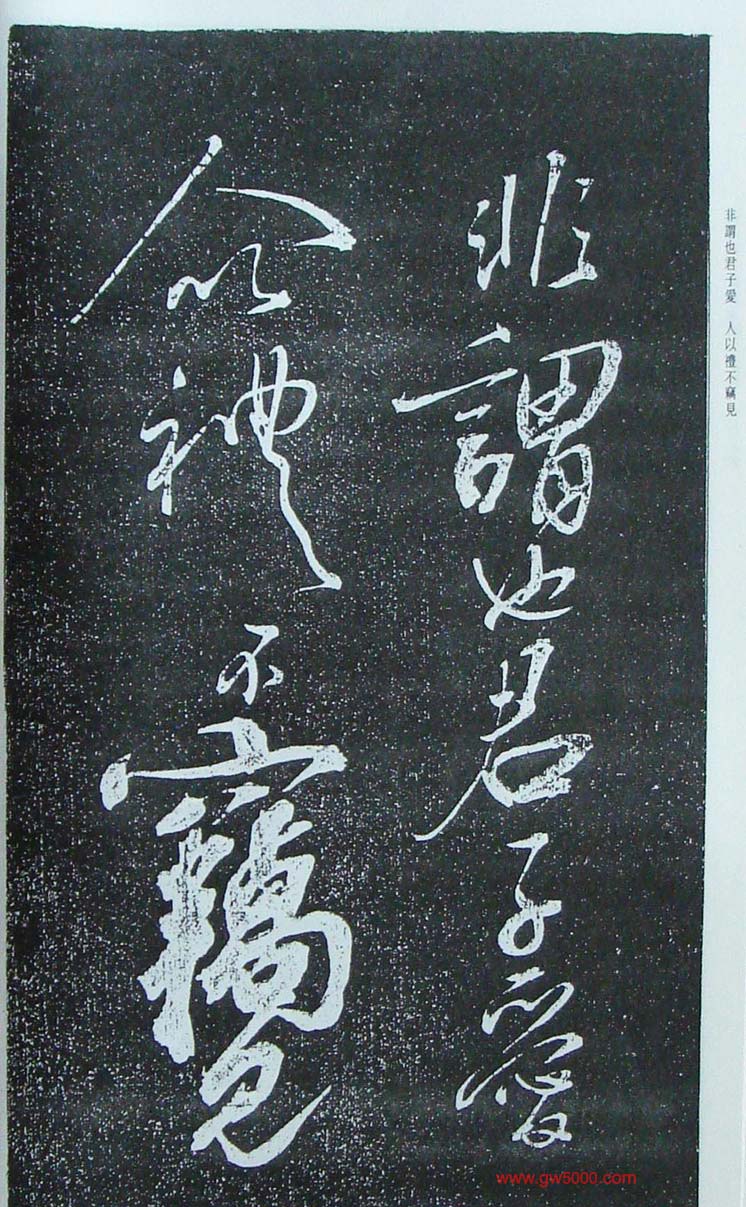 非謂也君子愛
人以禮不竊見
非謂也君子愛 人以禮不竊見
www.gw5000.com